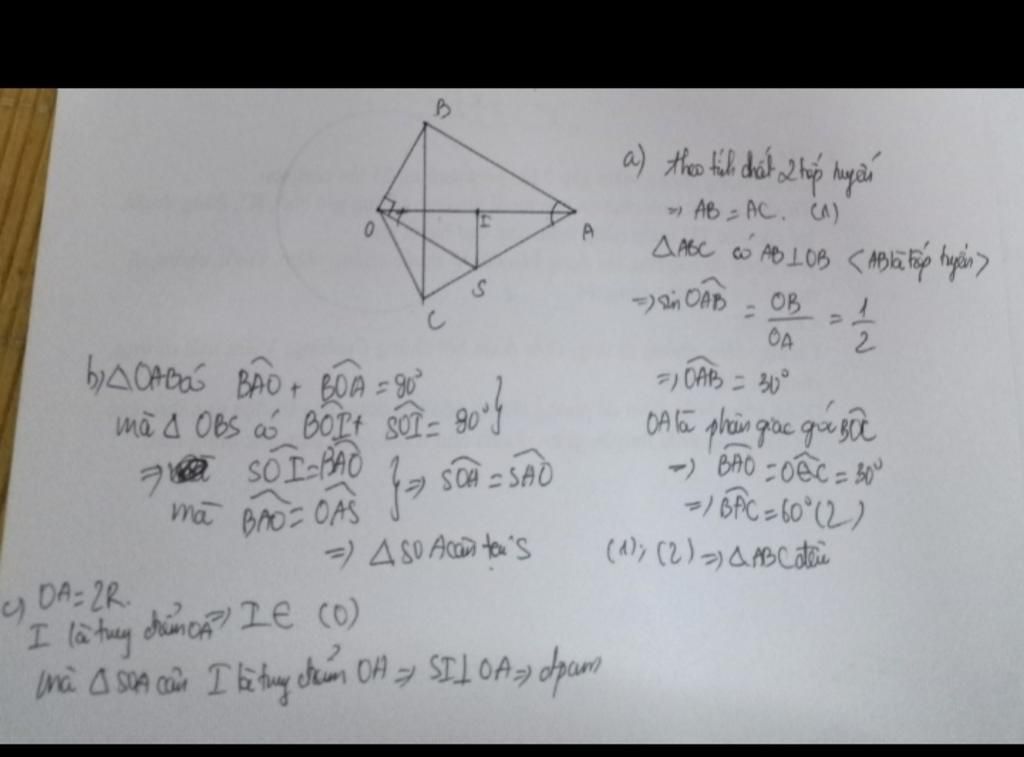 B
O
I
A
S
C
a) theo tính chất 2 tiếp tuyến
=> AB = AC. (1)
△ABC có AB⊥OB <AB là tiếp tuyến>
=> sin OAB = OB/OA = 1/2
=> OAB = 30°
OA là phân giác góc BOC
=> BAO = OAC = 30°
=> BAC = 60° (2)
(1); (2) => △ABC đều
b) △OAB có BAO + BOA = 90°
mà △ OBS có BOI + SOI = 90° }
=> SOI = BAO
mà BAO = OAS } => SOA = SAO
=> △SOA cân tại S
c) OA = 2R.
I là trung điểm OA => I ∈ (O)
mà △SOA cân I là trung điểm OA => SI⊥OA => đpcm